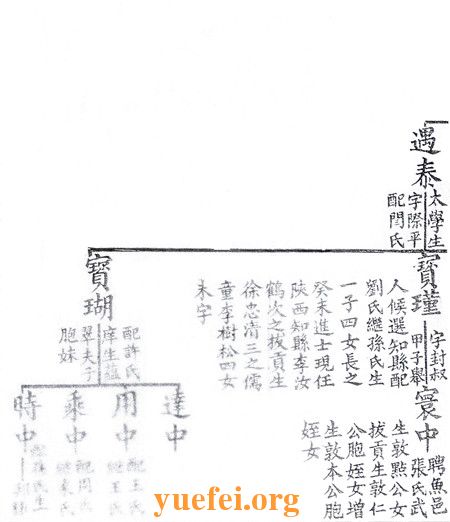 遇泰
太學生
字際平
配閆氏
寶瑾
字封叔
甲子舉
人候選知縣配
劉氏繼孫氏生
一子四女長之
癸未進士現任
陝西知縣李汝
鶴次之拔貢生
徐忠清三之儒
童李樹松四女
未字
寰中
聘魚邑
張氏武
生敦點公女
拔貢生敦仁
公胞姪女增
生敦本公胞
姪女
寶瑚
配許氏
庠生蘊
翠夫子
胞妹
達中
用中
配王氏
繼王氏
乘中
配周氏
時中
yuefei.org